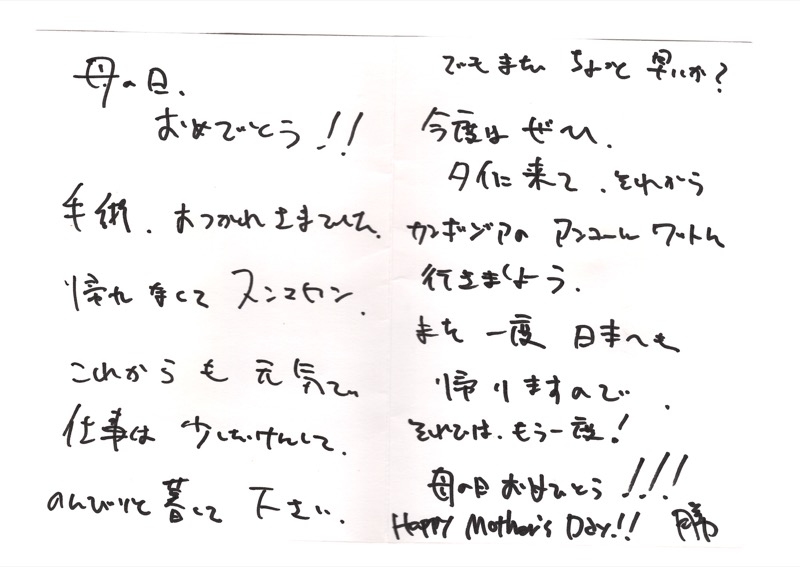 母の日、
おめでとう!!
手術、おつかれさまでした。
帰れなくてスンマセン。
これからも元気で、
仕事は少しだけんして、
のんびりと暮して下さい。
でもまだちょっと早いか?
今度はぜひ、
タイに来て、それから
カンボジアのアンコールワットへ
行きましょう。
また一度日本へも
帰りますので、
それでは、もう一度!
母の日おめでとう!!!
Happy Mother's Day!!